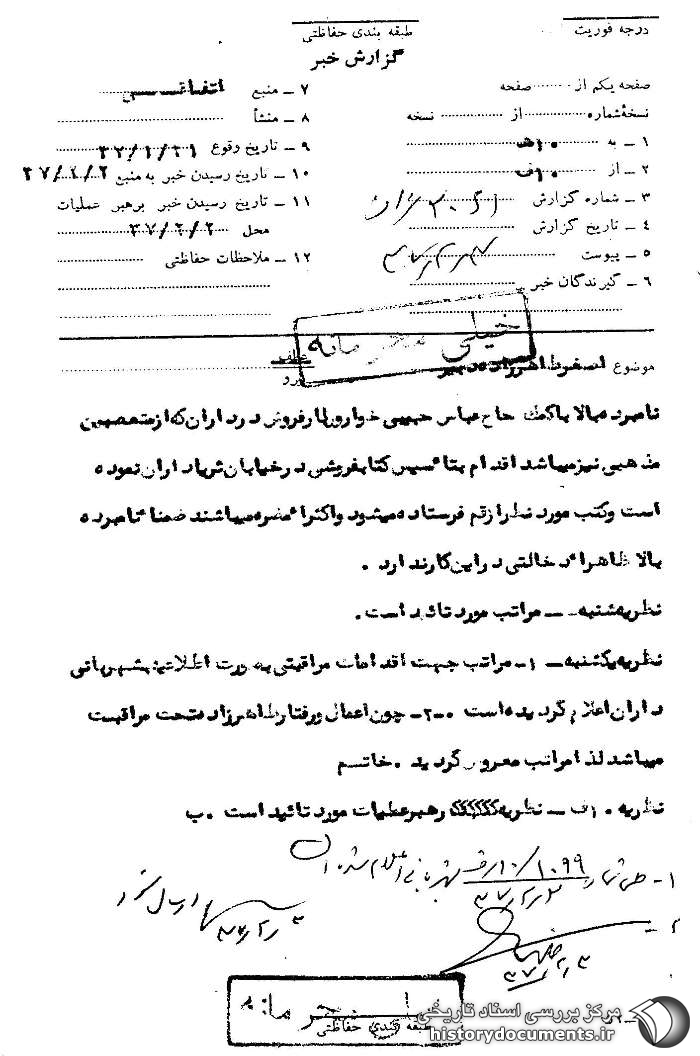 درجه فوریت
طبقه بندی حفاظتی
گزارش خبر
صفحه یکم از ........ صفحه
نسخهٔ شماره ........ از ........ نسخه
۱ ــ به ۱۰هـ
۲ ــ از ۱۰ف
۳ ــ شماره گزارش
۴ ــ تاریخ گزارش
۵ ــ پیوست
۶ ــ گیرندگان خبر
۷ ــ منبع
۸ ــ منشأ
۹ ــ تاریخ وقوع ۳۷/۱/۳۱
۱۰ ــ تاریخ رسیدن خبر به منبع ۳۷/۲/۲
۱۱ ــ تاریخ رسیدن خبر برهبر عملیات
محل ۳۷/۲/۲
۱۲ ــ ملاحظات حفاظتی
خیلی محرمانه
عطف
پیرو
موضوع
نامبرده بالا با کمک حاج عباس حبیبی خواروبار فروش در داران که از متعصبین
مذهبی نیز میباشد اقدام بتاسیس کتابفروشی در خیابان شهردار داران نموده
است و کتب مورد نظر از قم فرستاده میشود و اکثرا مضره میباشند ضمنا نامبرده
بالا ظاهرا دخالتی در این کار ندارد .
نظریه شنبه ــ مراتب مورد تائید است .
نظریه یکشنبه ــ ۱ــ مراتب جهت اقدامات مراقبتی بصورت اطلاعیه بشهربانی
داران اعلام گردیده است ۰ ۲ــ چون اعمال و رفتار طاهرزاده تحت مراقبت
میباشد لذا مراتب معروض گردید . خاتم
نظریه ۱۰ف ــ نظریه رهبر عملیات مورد تائید است . ب
۱ــ طی شماره ۱۰۹۹/۱۰ف شهربانی اعلام شد
ارسال شود
۲ــ
طبقه بندی حفاظتی
مرکز بررسی اسناد تاریخی
historydocuments.ir